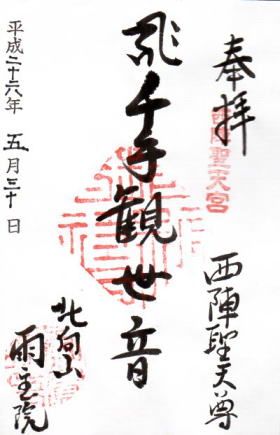 奉拝
西陣聖天宮
西陣聖天尊
千手観世音
北向山
雨主院
平成二十六年 五月三十日